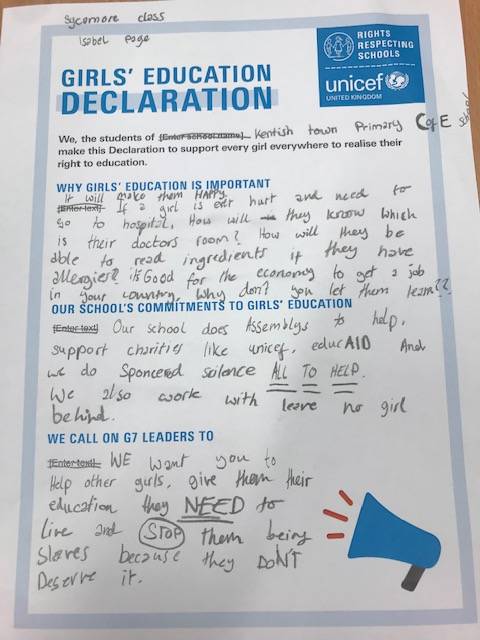 Sycamore class
Isabel Page
RIGHTS
RESPECTING
SCHOOLS
unicef
UNITED KINGDOM
GIRLS' EDUCATION
DECLARATION
We, the students of [Enter school name] Kentish town Primary CofE school
make this Declaration to support every girl everywhere to realise their
right to education.
WHY GIRLS' EDUCATION IS IMPORTANT
It will make them HAPPY
[Enter text] If a girl is hurt and need to
Go to hospital, How will they know which
is their doctors room? How will they be
able to read ingredients if they have
allergies? it's Good for the economy to get a job
in your country, why don't you let them learn??
OUR SCHOOL'S COMMITMENTS TO GIRLS' EDUCATION
[Enter text] Our school does Assemblys to help,
support charities like unicef, educAID And
we do Sponcered science ALL TO HELP.
We also work with leave no girl
behind.
WE CALL ON G7 LEADERS TO
[Enter text] WE want you to
Help other girls, give them their
education they NEED to
Live and STOP them being
Slaves because they DON'T
Deserve it.